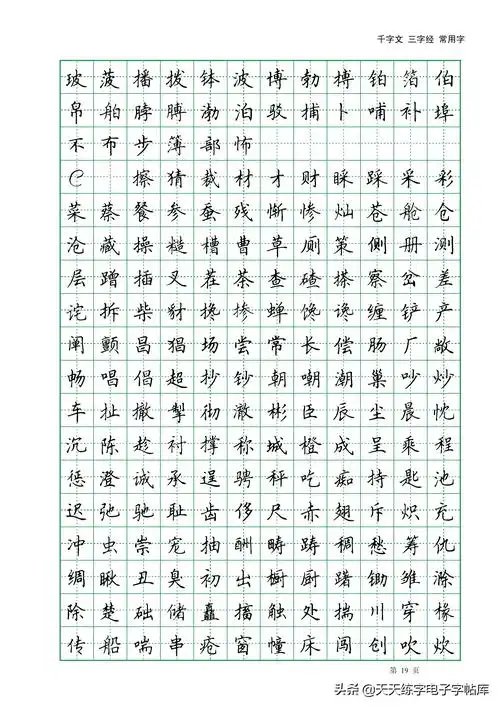 千字文 三字经 常用字
玻菠播拨钵波博勃搏铂箔伯
帛舶脖膊渤泊驳捕卜哺补埠
不布步簿部怖
C 擦猜裁材才财睬踩采彩
菜蔡餐参蚕残惭惨灿苍舱仓
沧藏操糙槽曹草厕策侧册测
层蹭插叉茬茶查碴搽察岔差
诧拆柴豺搀掺蝉馋谗缠铲产
阐颤昌猖场尝常长偿肠厂敞
畅唱倡超抄钞朝嘲潮巢吵炒
车扯撤掣彻澈彬臣辰尘晨忱
沉陈趁衬撑称城橙成呈乘程
惩澄诚承逞骋秤吃痴持匙池
迟弛驰耻齿侈尺赤翅斥炽充
冲虫崇宠抽酬畴踌稠愁筹仇
绸瞅丑臭初出橱厨躇锄雏滁
除楚础储矗搐触处揣川穿椽
传船喘串疮窗幢床闯创吹炊
第 19 页
头条 @天天练字电子字帖库